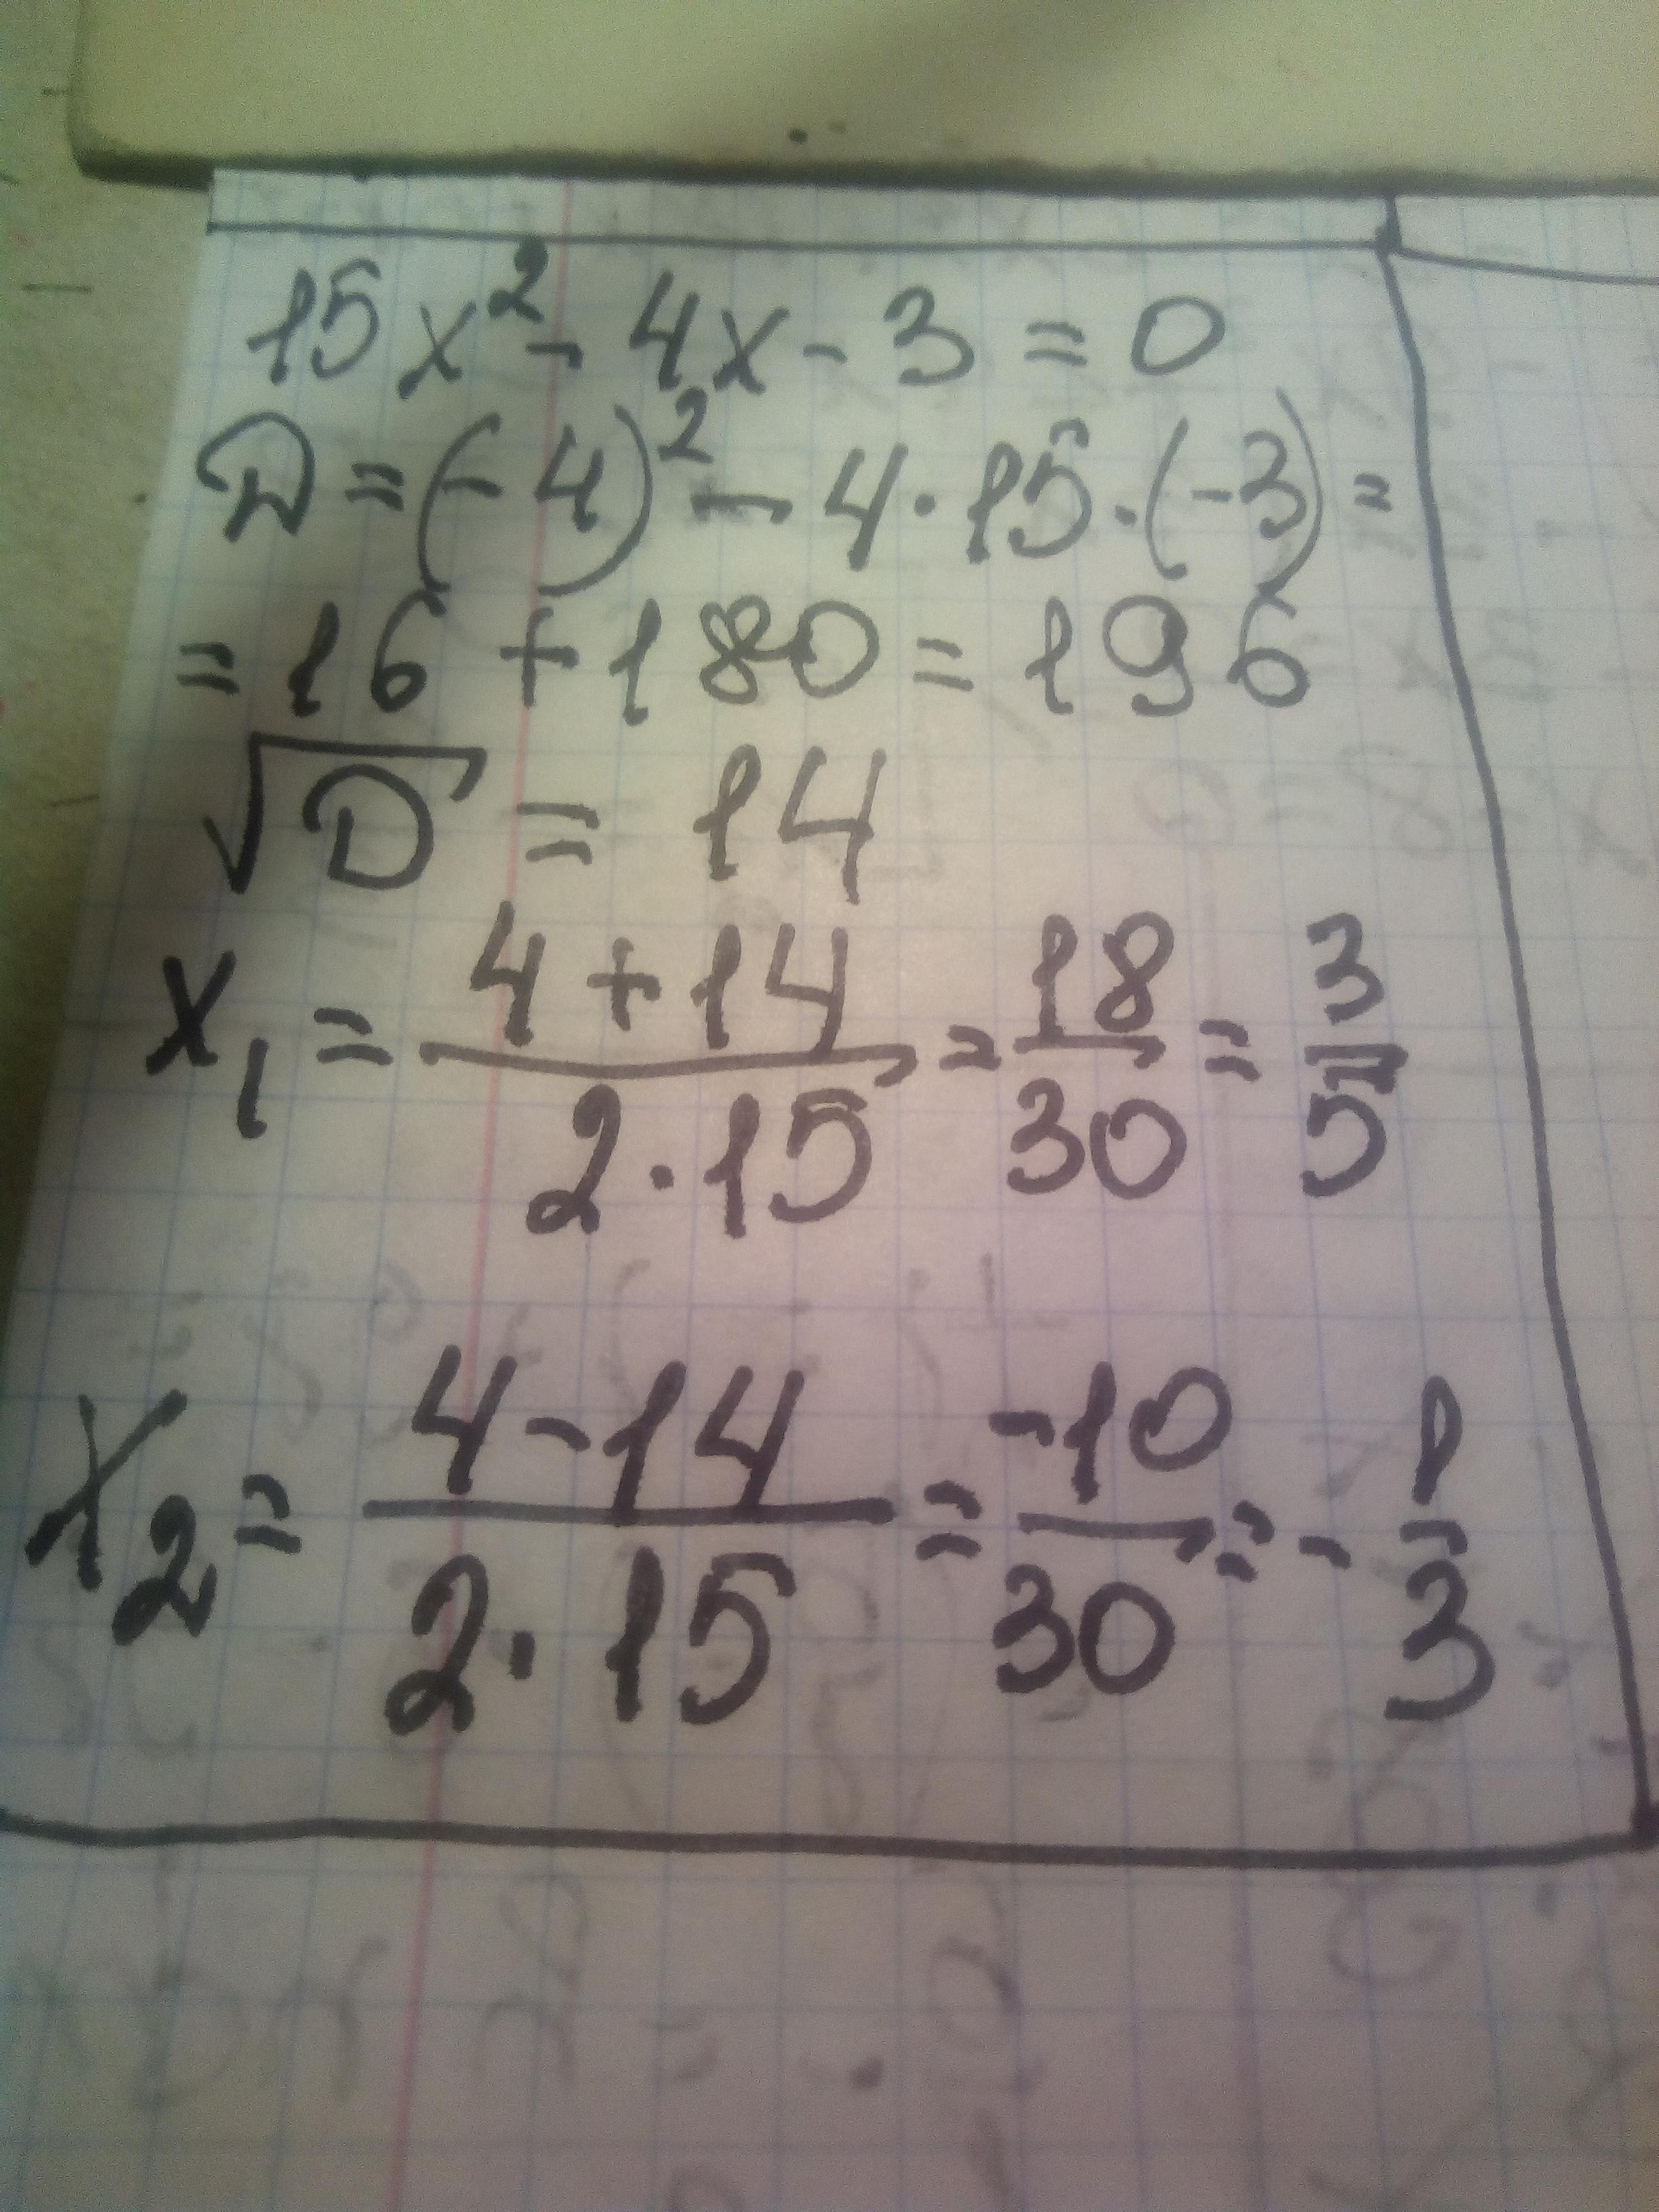 15x² - 4x - 3 = 0
D = (-4)² - 4 · 15 · (-3) =
= 16 + 180 = 196
√D = 14
x₁ = (4 + 14)/(2 · 15) = 18/30 = 3/5
x₂ = (4 - 14)/(2 · 15) = -10/30 = - 1/3